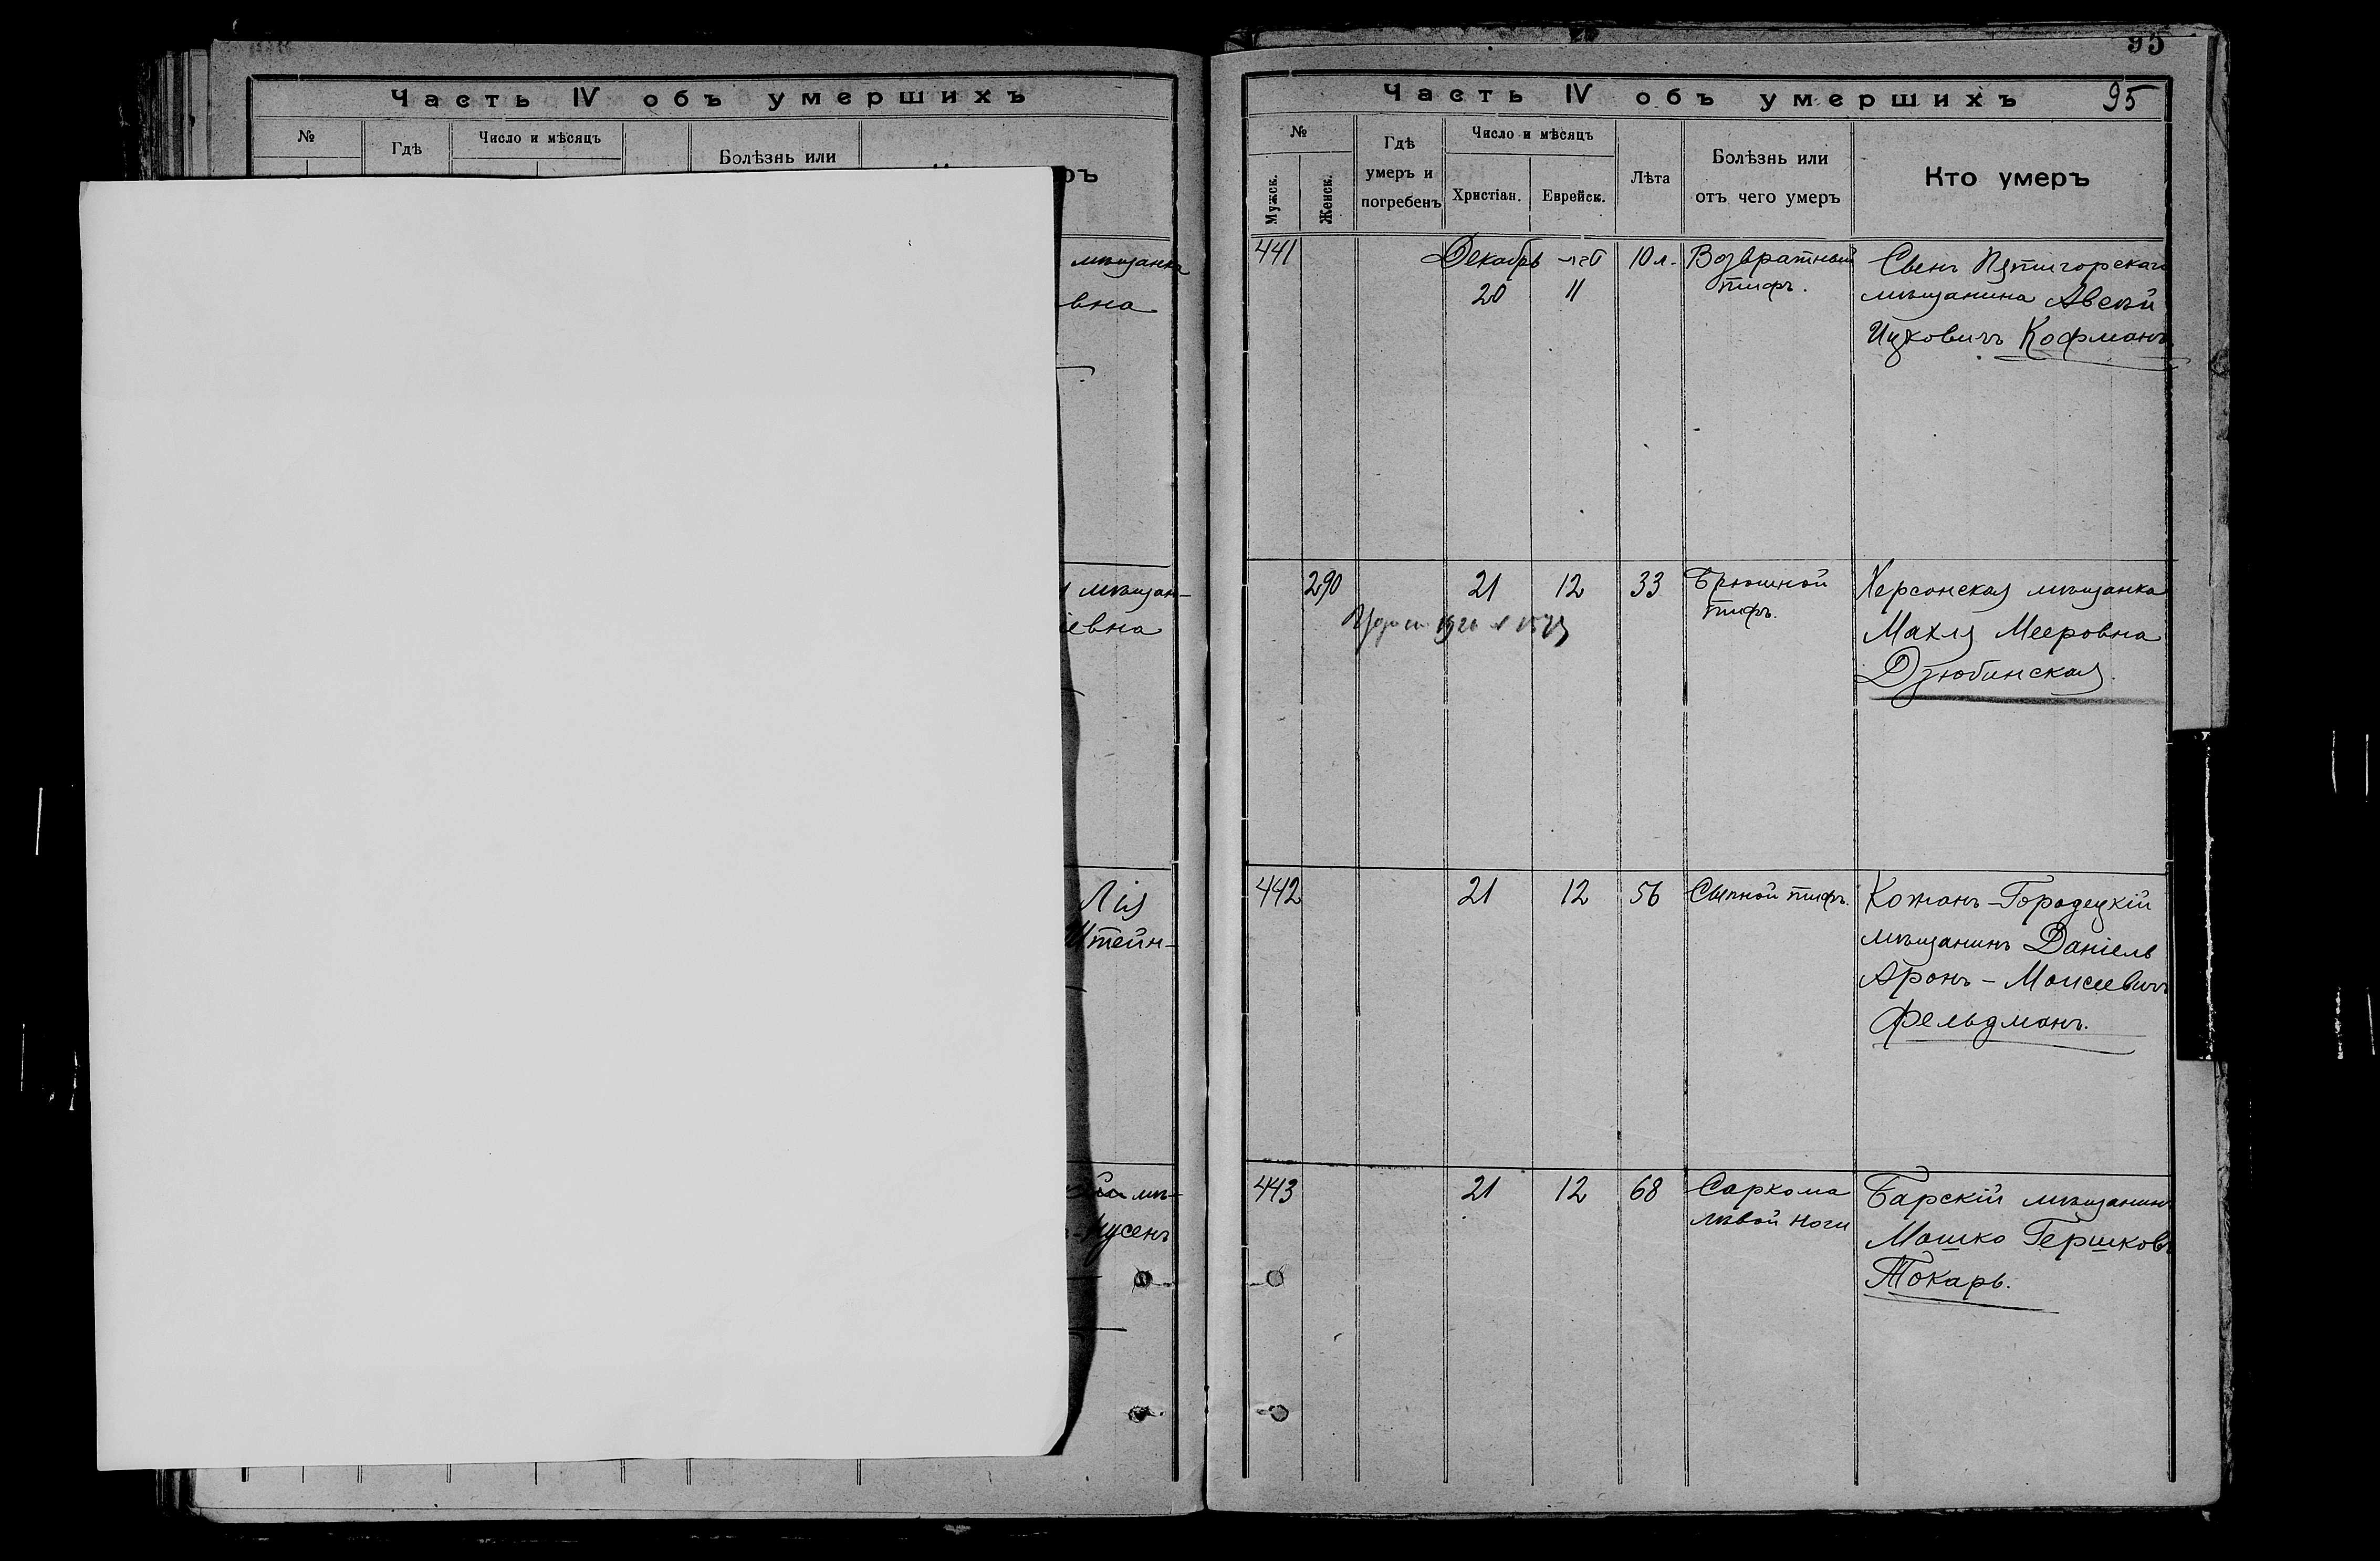 Часть IV объ умершихъ
№
Гдѣ
Число и мѣсяцъ
Болѣзнь или
ръ
мѣщанка
вна
мѣщан-
евна
Лія
Штейн-
мѣ-
Нусенъ
95
Часть IV объ умершихъ 95
№
Мужск.
Женск.
Гдѣ
умеръ и
погребенъ
Число и мѣсяцъ
Христіан.
Еврейск.
Лѣта
Болѣзнь или
отъ чего умеръ
Кто умеръ
441 Декабрь טבת 10 л. Возвратный
20 11 тифъ.
Сынъ Пятигорскаго
мѣщанина Авсѣй
Ицковичъ Кофманъ
290 21 12 33 Брюшной
тифъ.
Херсонская мѣщанка
Махля Мееровна
Дзюбинская.
442 21 12 56 Сыпной тифъ.
Кожанъ-Городецкій
мѣщанинъ Даніель
Аронъ-Моисеевичъ
Фельдманъ.
443 21 12 68 Саркома
лѣвой ноги
Барскій мѣщанинъ
Мошко Гершковъ
Токарь.